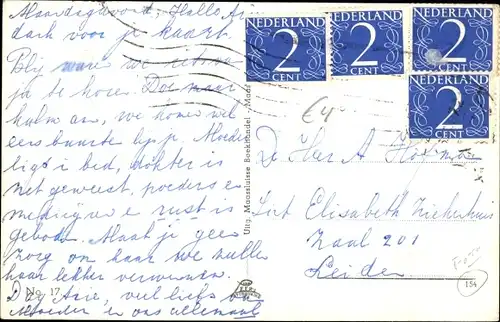 Maandagavond, Hallo Arie
dank voor je kaart.
Blij waren we
je te horen. Doe maar
kalm an, we komen wel
eens buurten bij je. Moeder
ligt in bed, dokter is
net geweest, poeders en
medicijne en rust is
geboden. Maak je geen
zorg om haar we zullen
haar lekker verwennen.
Dag Arie, veel liefs van
Moeder en ons allemaal
No. 17
Uitg. Maassluisse Boekhandel - Maass
NEDERLAND
2
CENT
NEDERLAND
2
CENT
NEDERLAND
2
CENT
NEDERLAND
2
CENT
€4
De Heer A
Sint Elisabeth Ziekenhuis
Zaal 201
Leiden
154